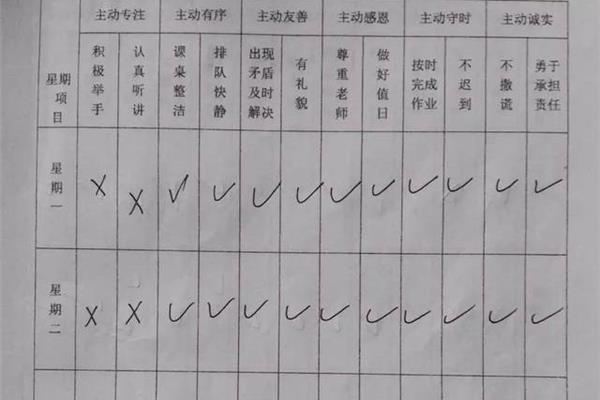 主动专注 主动有序 主动友善 主动感恩 主动守时 主动诚实
星期项目 积极举手 认真听讲 课桌整洁 排队快静 出现矛盾及时解决 有礼貌 尊重老师 做好值日 按时完成作业 不迟到 不撒谎 勇于承担责任
星期一 X X ✓ ✓ ✓ ✓ ✓ ✓ ✓ ✓ ✓ ✓
星期二 X X ✓ ✓ ✓ ✓ ✓ ✓ ✓ ✓ ✓ ✓